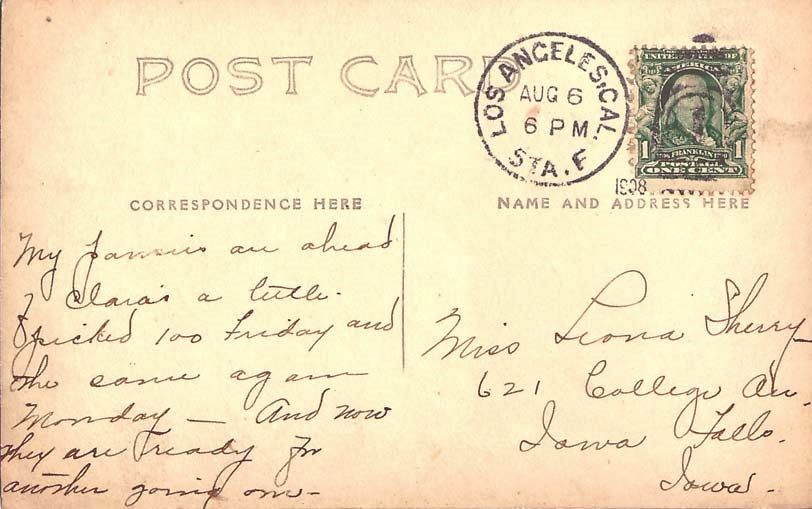 POST CARD
LOS ANGELES, CAL.
AUG 6
6 PM
STA. F
1908
UNITED STATES OF
AMERICA
1 FRANKLIN 1
POSTAGE
ONE CENT
CORRESPONDENCE HERE
NAME AND ADDRESS HERE
My pansies are ahead
of Clara's a little.
I picked 100 Friday and
the same again
Monday — And now
they are ready for
another going over -
Miss Leona Sherry
621 College Av.
Iowa Falls.
Iowa.